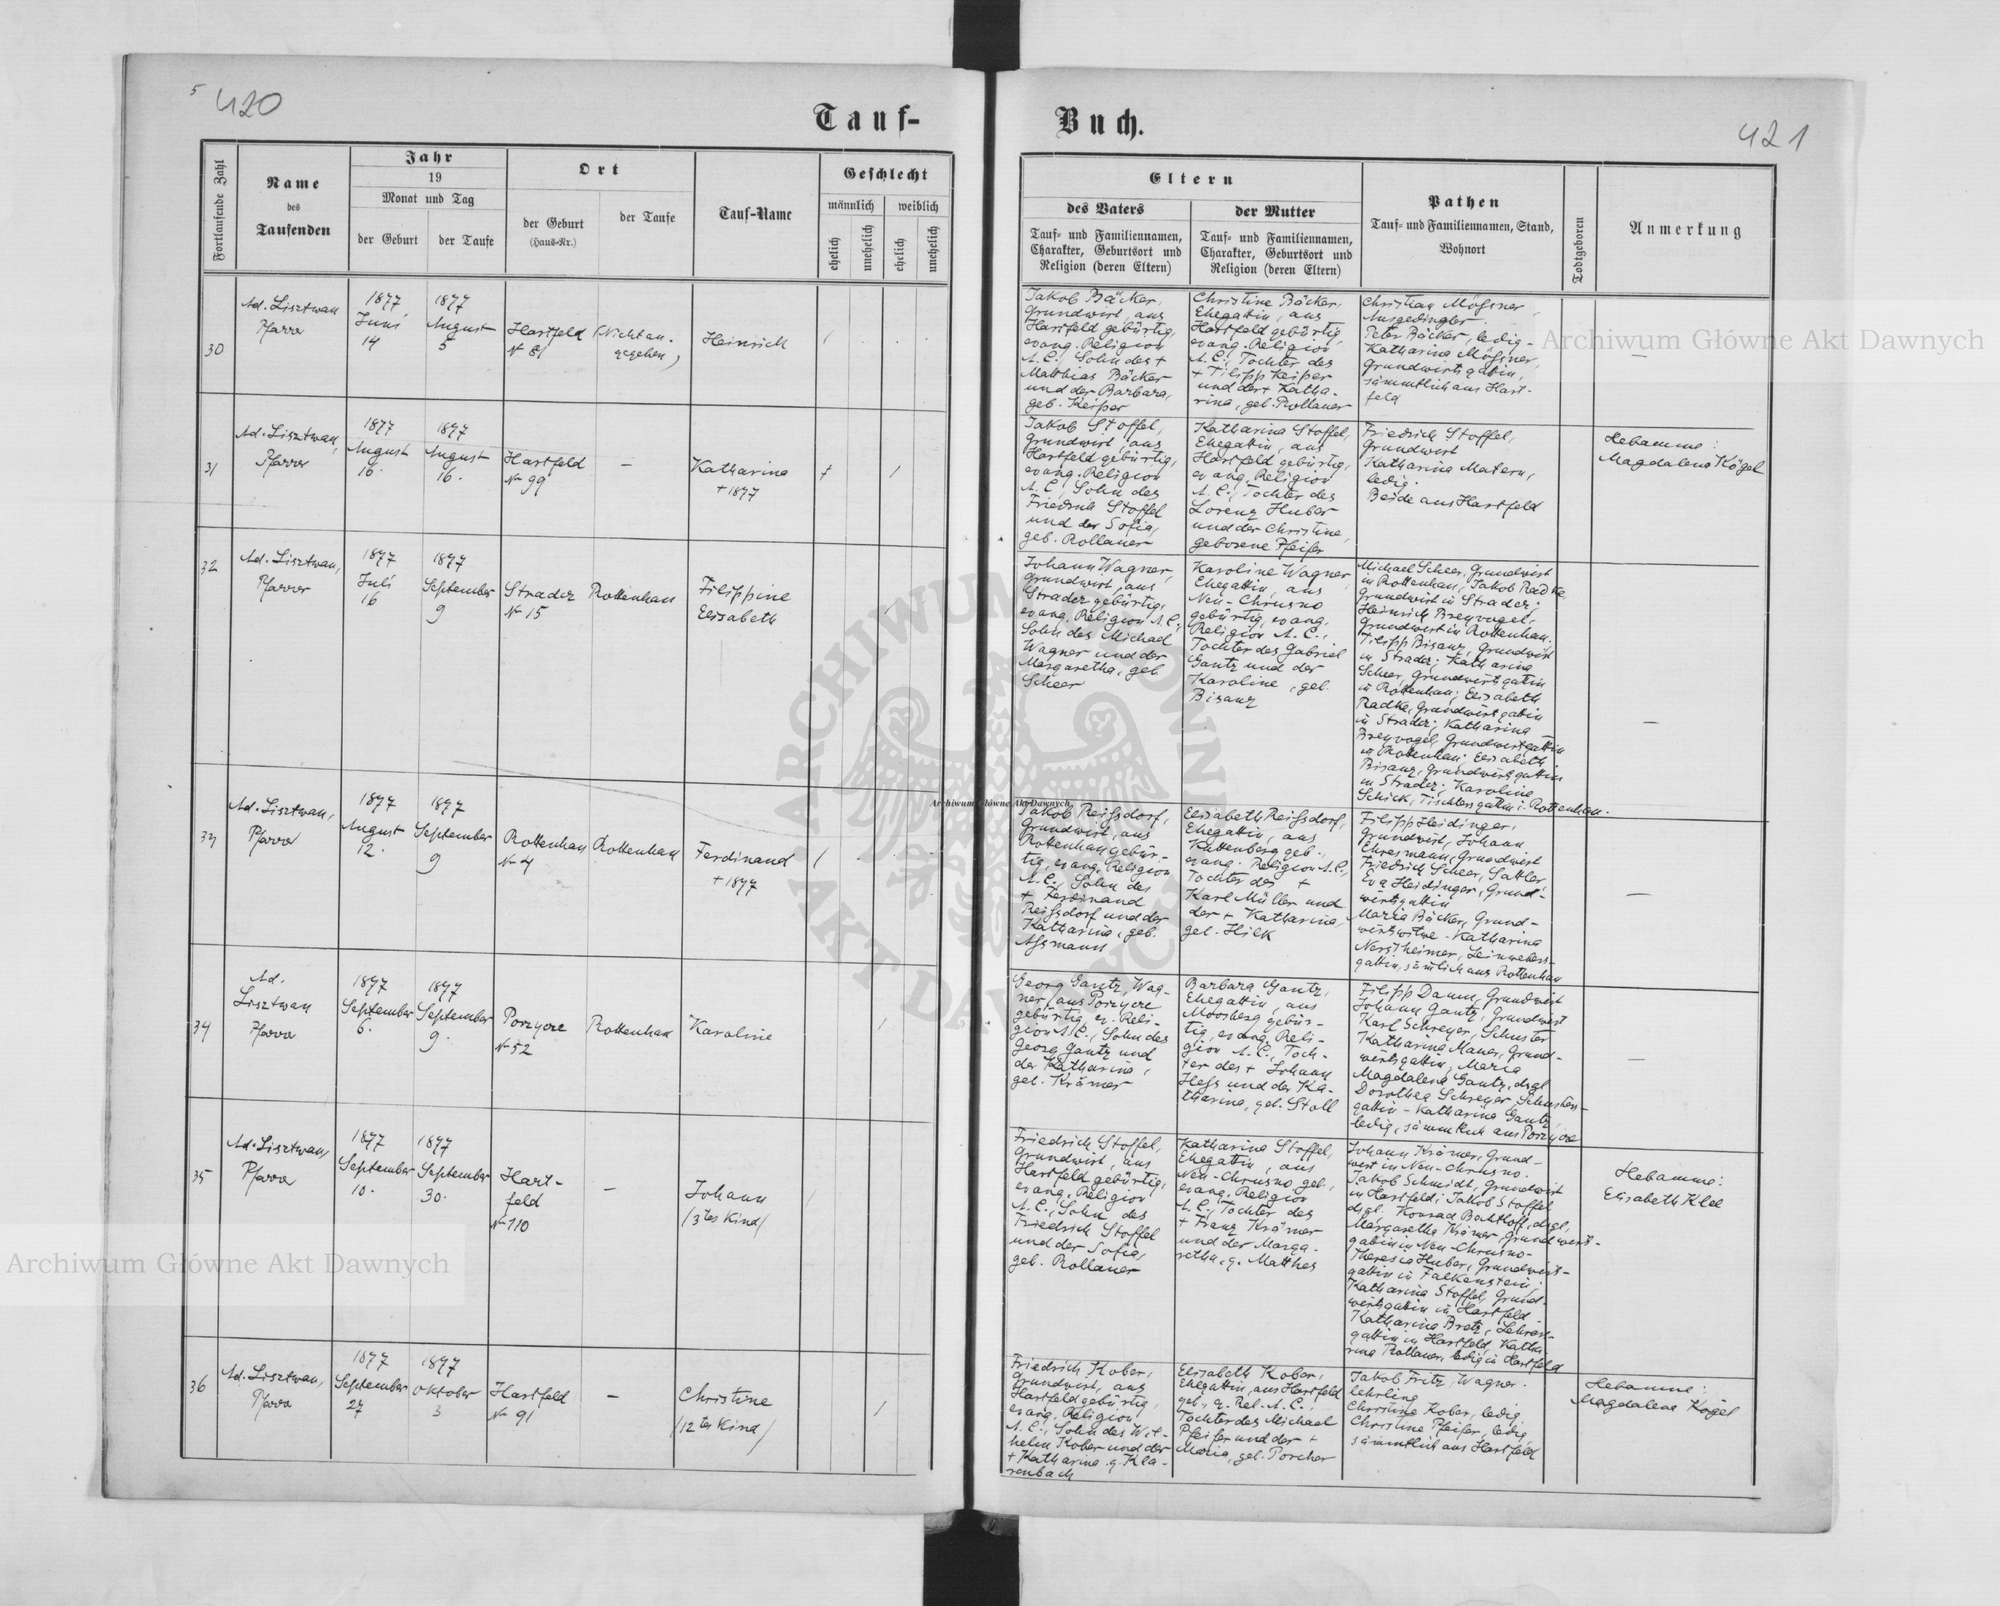 5 420
Tauf-
Buch.
421
Fortlaufende Zahl
Name
des
Taufenden
Jahr
19
Monat und Tag
der Geburt
der Taufe
Ort
der Geburt
(Haus-Nr.)
der Taufe
Tauf-Name
Geschlecht
männlich
weiblich
ehelich
unehelich
ehelich
unehelich
Eltern
des Vaters
Tauf- und Familiennamen,
Charakter, Geburtsort und
Religion (deren Eltern)
der Mutter
Tauf- und Familiennamen,
Charakter, Geburtsort und
Religion (deren Eltern)
Pathen
Tauf- und Familiennamen, Stand,
Wohnort
Todtgeboren
Anmerkung
30
Ad. Lisztwan
Pfarrer
1877
Juni
14
1877
August
5
Hartfeld
No 81
(Nicht an-
gegeben)
Heinrich
Jakob Bäcker,
Grundwirt, aus
Hartfeld gebürtig,
evang. Religion
A.C., Sohn des +
Matthias Bäcker
und der Barbara,
geb. Keiper
Christine Bäcker,
Ehegattin, aus
Hartfeld gebürtig,
evang. Religion
A.C., Tochter des
+ Filipp Keiper
und der + Katha-
rina, geb. Rollauer
Christian Mößner,
Ausgedingter.
Peter Bäcker, ledig -
Katharina Mößner,
Grundwirtsgattin,
sämmtlich aus Hart-
feld
31
Ad. Lisztwan,
Pfarrer
1877
August
16.
1877
August
16.
Hartfeld
No 99
–
Katharina
+ 1877
Jakob Stoffel,
Grundwirt, aus
Hartfeld gebürtig,
evang. Religion
A.C., Sohn des
Friedrich Stoffel
und der Sofia,
geb. Rollauer
Katharina Stoffel,
Ehegattin, aus
Hartfeld gebürtig,
evang. Religion
A.C., Tochter des
Lorenz Huber
und der Christine,
geborene Pfeifer
Friedrich Stoffel,
Grundwirt
Katharina Matern,
ledig.
Beide aus Hartfeld
Hebamme:
Magdalena Kögel
32
Ad. Lisztwan,
Pfarrer
1877
Juli
16
1877
September
9
Stradcz
No 15
Rottenhan
Filippine
Elisabeth
Johann Wagner,
Grundwirt, aus
Stradcz gebürtig,
evang. Religion A.C.,
Sohn des Michael
Wagner und der
Margaretha, geb.
Scheer
Karoline Wagner,
Ehegattin, aus
Neu-Chrusno
gebürtig, evang.
Religion A.C.,
Tochter des Gabriel
Gantz und der
Karoline, geb.
Bisanz
Michael Scheer, Grundwirt
in Rottenhan; Jakob Radke,
Grundwirt in Stradcz;
Heinrich Breyvogel,
Grundwirt in Rottenhan.
Filipp Bisanz, Grundwirt
in Stradcz; Katharina
Scheer, Grundwirtsgattin
in Rottenhan; Elisabeth
Radke, Grundwirtsgattin
in Stradcz; Katharina
Breyvogel, Grundwirtsgattin
in Rottenhan; Elisabeth
Bisanz, Grundwirtsgattin
in Stradcz; Karoline
Schick, Tischlersgattin i. Rottenhan.
–
33
Ad. Lisztwan,
Pfarrer
1877
August
12.
1877
September
9
Rottenhan
No 4
Rottenhan
Ferdinand
+ 1877
Jakob Reißdorf,
Grundwirt, aus
Rottenhan gebür-
tig, evang. Religion
A.C., Sohn des
+ Ferdinand
Reißdorf und der
Katharina, geb.
Aßmann
Elisabeth Reißdorf,
Ehegattin, aus
Kuttenberg geb.,
evang. Religion A.C.,
Tochter des +
Karl Müller und
der + Katharina,
geb. Hilk
Filipp Heidinger,
Grundwirt, Johann
Ehresmann, Grundwirt
Friedrich Scheer, Sattler,
Eva Heidinger, Grund-
wirtsgattin
Maria Bäcker, Grund-
wirtswitwe - Katharina
Nerstheimer, Leinwebers-
gattin, sämtlich aus Rottenhan
–
34
Ad.
Lisztwan
Pfarrer
1877
September
6.
1877
September
9.
Porzycze
No 52
Rottenhan
Karoline
Georg Gantz, Wag-
ner, aus Porzycze
gebürtig, ev. Reli-
gion A.C., Sohn des
Georg Gantz und
der Katharina,
geb. Krämer
Barbara Gantz,
Ehegattin, aus
Moosberg gebür-
tig, evang. Reli-
gion A.C., Toch-
ter des + Johann
Heß und der Ka-
tharina, geb. Stoll
Filipp Damm, Grundwirt
Johann Gantz, Grundwirt
Karl Schreyer, Schuster
Katharina Mauer, Grund-
wirtsgattin, Maria
Magdalena Gantz, dsgl.
Dorothea Schreyer, Schusters-
gattin - Katharina Gantz,
ledig, sämmtlich aus Porzycze
–
35
Ad. Lisztwan,
Pfarrer
1877
September
10.
1877
September
30.
Hart-
feld
No 110
–
Johann
/3tes Kind/
Friedrich Stoffel,
Grundwirt, aus
Hartfeld gebürtig,
evang. Religion
A.C., Sohn des
Friedrich Stoffel
und der Sofia,
geb. Rollauer
Katharina Stoffel,
Ehegattin, aus
Neu-Chrusno geb.,
evang. Religion
A.C., Tochter des
+ Franz Krämer
und der Marga-
retha, g. Matthes
Johann Krämer, Grund-
wirt in Neu-Chrusno.
Jakob Schmidt, Grundwirt
in Hartfeld; Jakob Stoffel,
dsgl. Konrad Bechtloff, dsgl.,
Margaretha Krämer, Grundwirts-
gattin in Neu-Chrusno -
Theresia Huber, Grundwirts-
gattin in Falkenstein;
Katharina Stoffel, Grund-
wirtsgattin in Hartfeld -
Katharina Bretz, Lehrers-
gattin in Hartfeld, Katha-
rina Rollauer, ledig in Hartfeld
Hebamme:
Elisabeth Klee
36
Ad. Lisztwan,
Pfarrer
1877
September
27
1877
Oktober
3
Hartfeld
No 91
–
Christine
/12tes Kind/
Friedrich Kober,
Grundwirt, aus
Hartfeld gebürtig,
evang. Religion
A.C., Sohn des Wil-
helm Kober und der
+ Katharina g. Kla-
renbach
Elisabeth Kober,
Ehegattin, aus Hartfeld
geb., ev. Rel. A.C.,
Tochter des Michael
Pfeifer und der +
Maria, geb. Porcher
Jakob Fritz, Wagner-
lehrling
Christine Kober, ledig
Christine Pfeifer, ledig
sämmtlich aus Hartfeld
Hebamme:
Magdalena Kögel
Archiwum Główne Akt Dawnych
Archiwum Główne Akt Dawnych
Archiwum Główne Akt Dawnych
ARCHIWUM GŁÓWNE AKT DAWNYCH